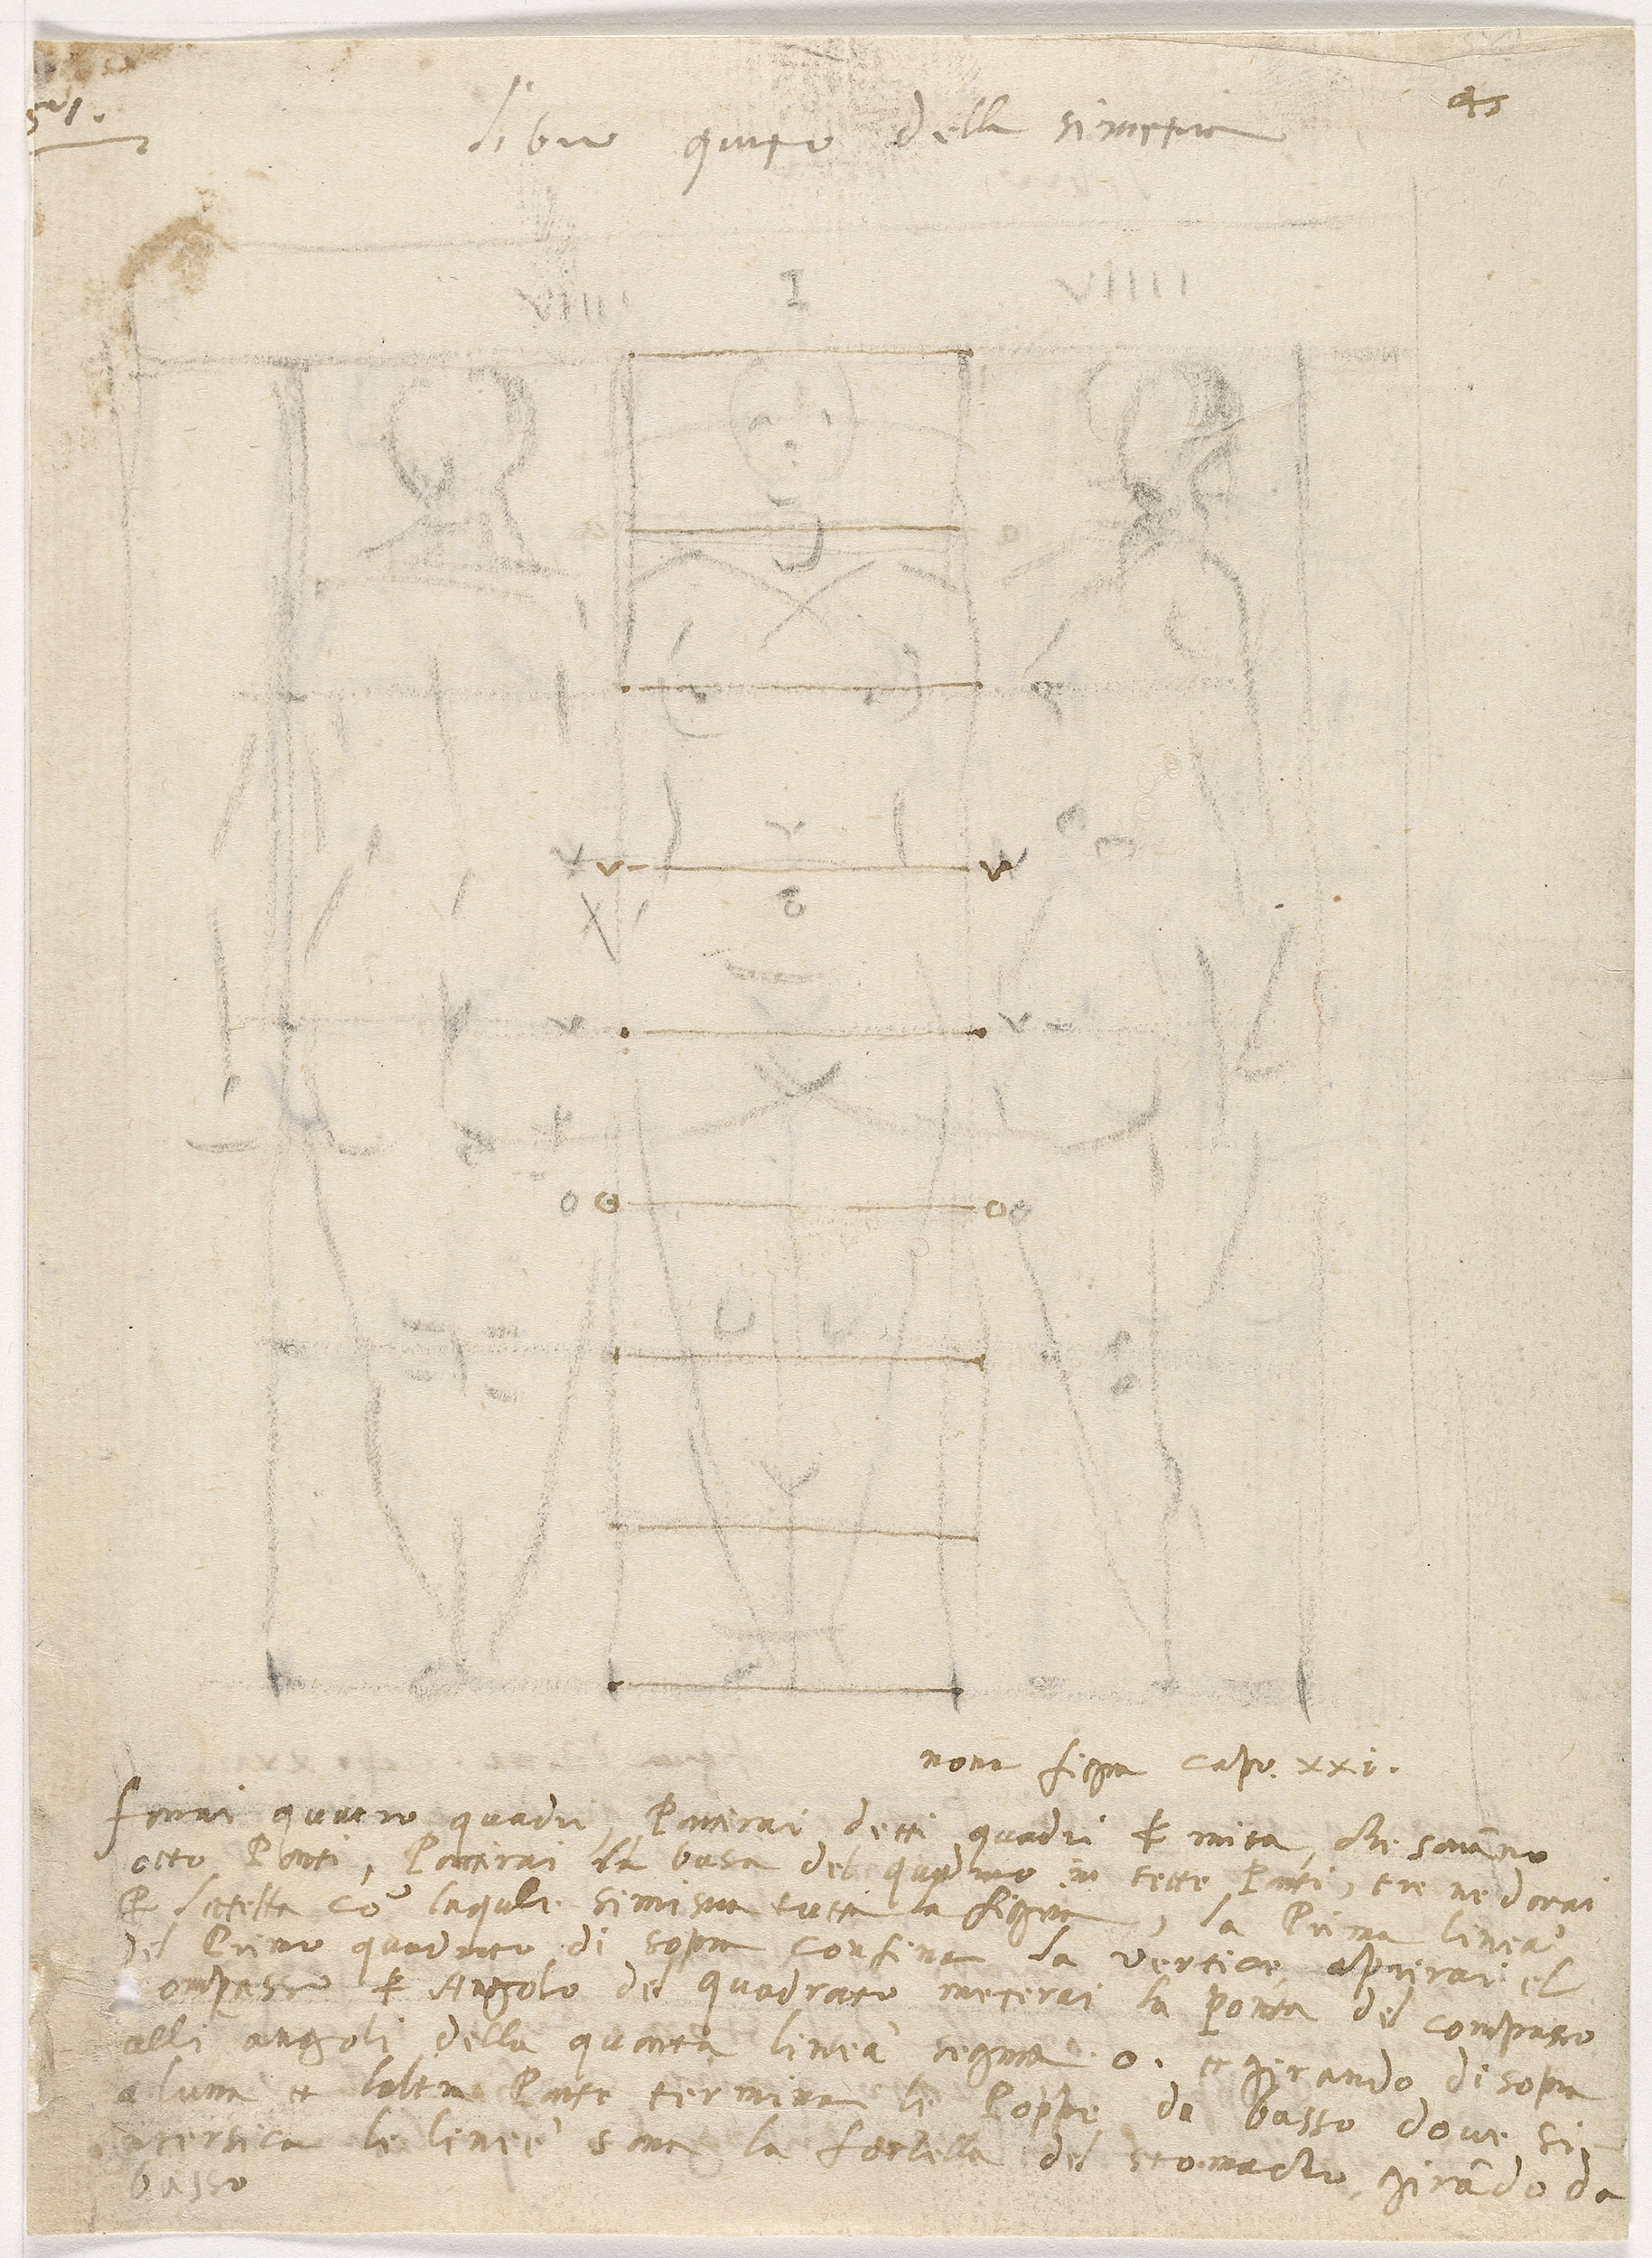 45
libro quinto della simetria
VIIII I VIIII
v v
v v
o o o o
nona figura capo. xxi.
farai quatro quadri, Partirai detti quadri P mita, che saran̄o
octo Parti, Partirai la basa del quadrato in sette Parti, tre ne darai
P latesta cō laqule simisura tutta la figura, la Prima linea
del Primo quadrato di sopra confina la vertice, aprirai el
compasso P Angolo del quadrato meterai la ponta del compasso
alli angoli della quarta linea segnata .o. et girando di sopra
a luna et laltra Parte termina le Poppe, da basso dove si
intersica le linee sara la forcella del stomacho, girādo da
basso